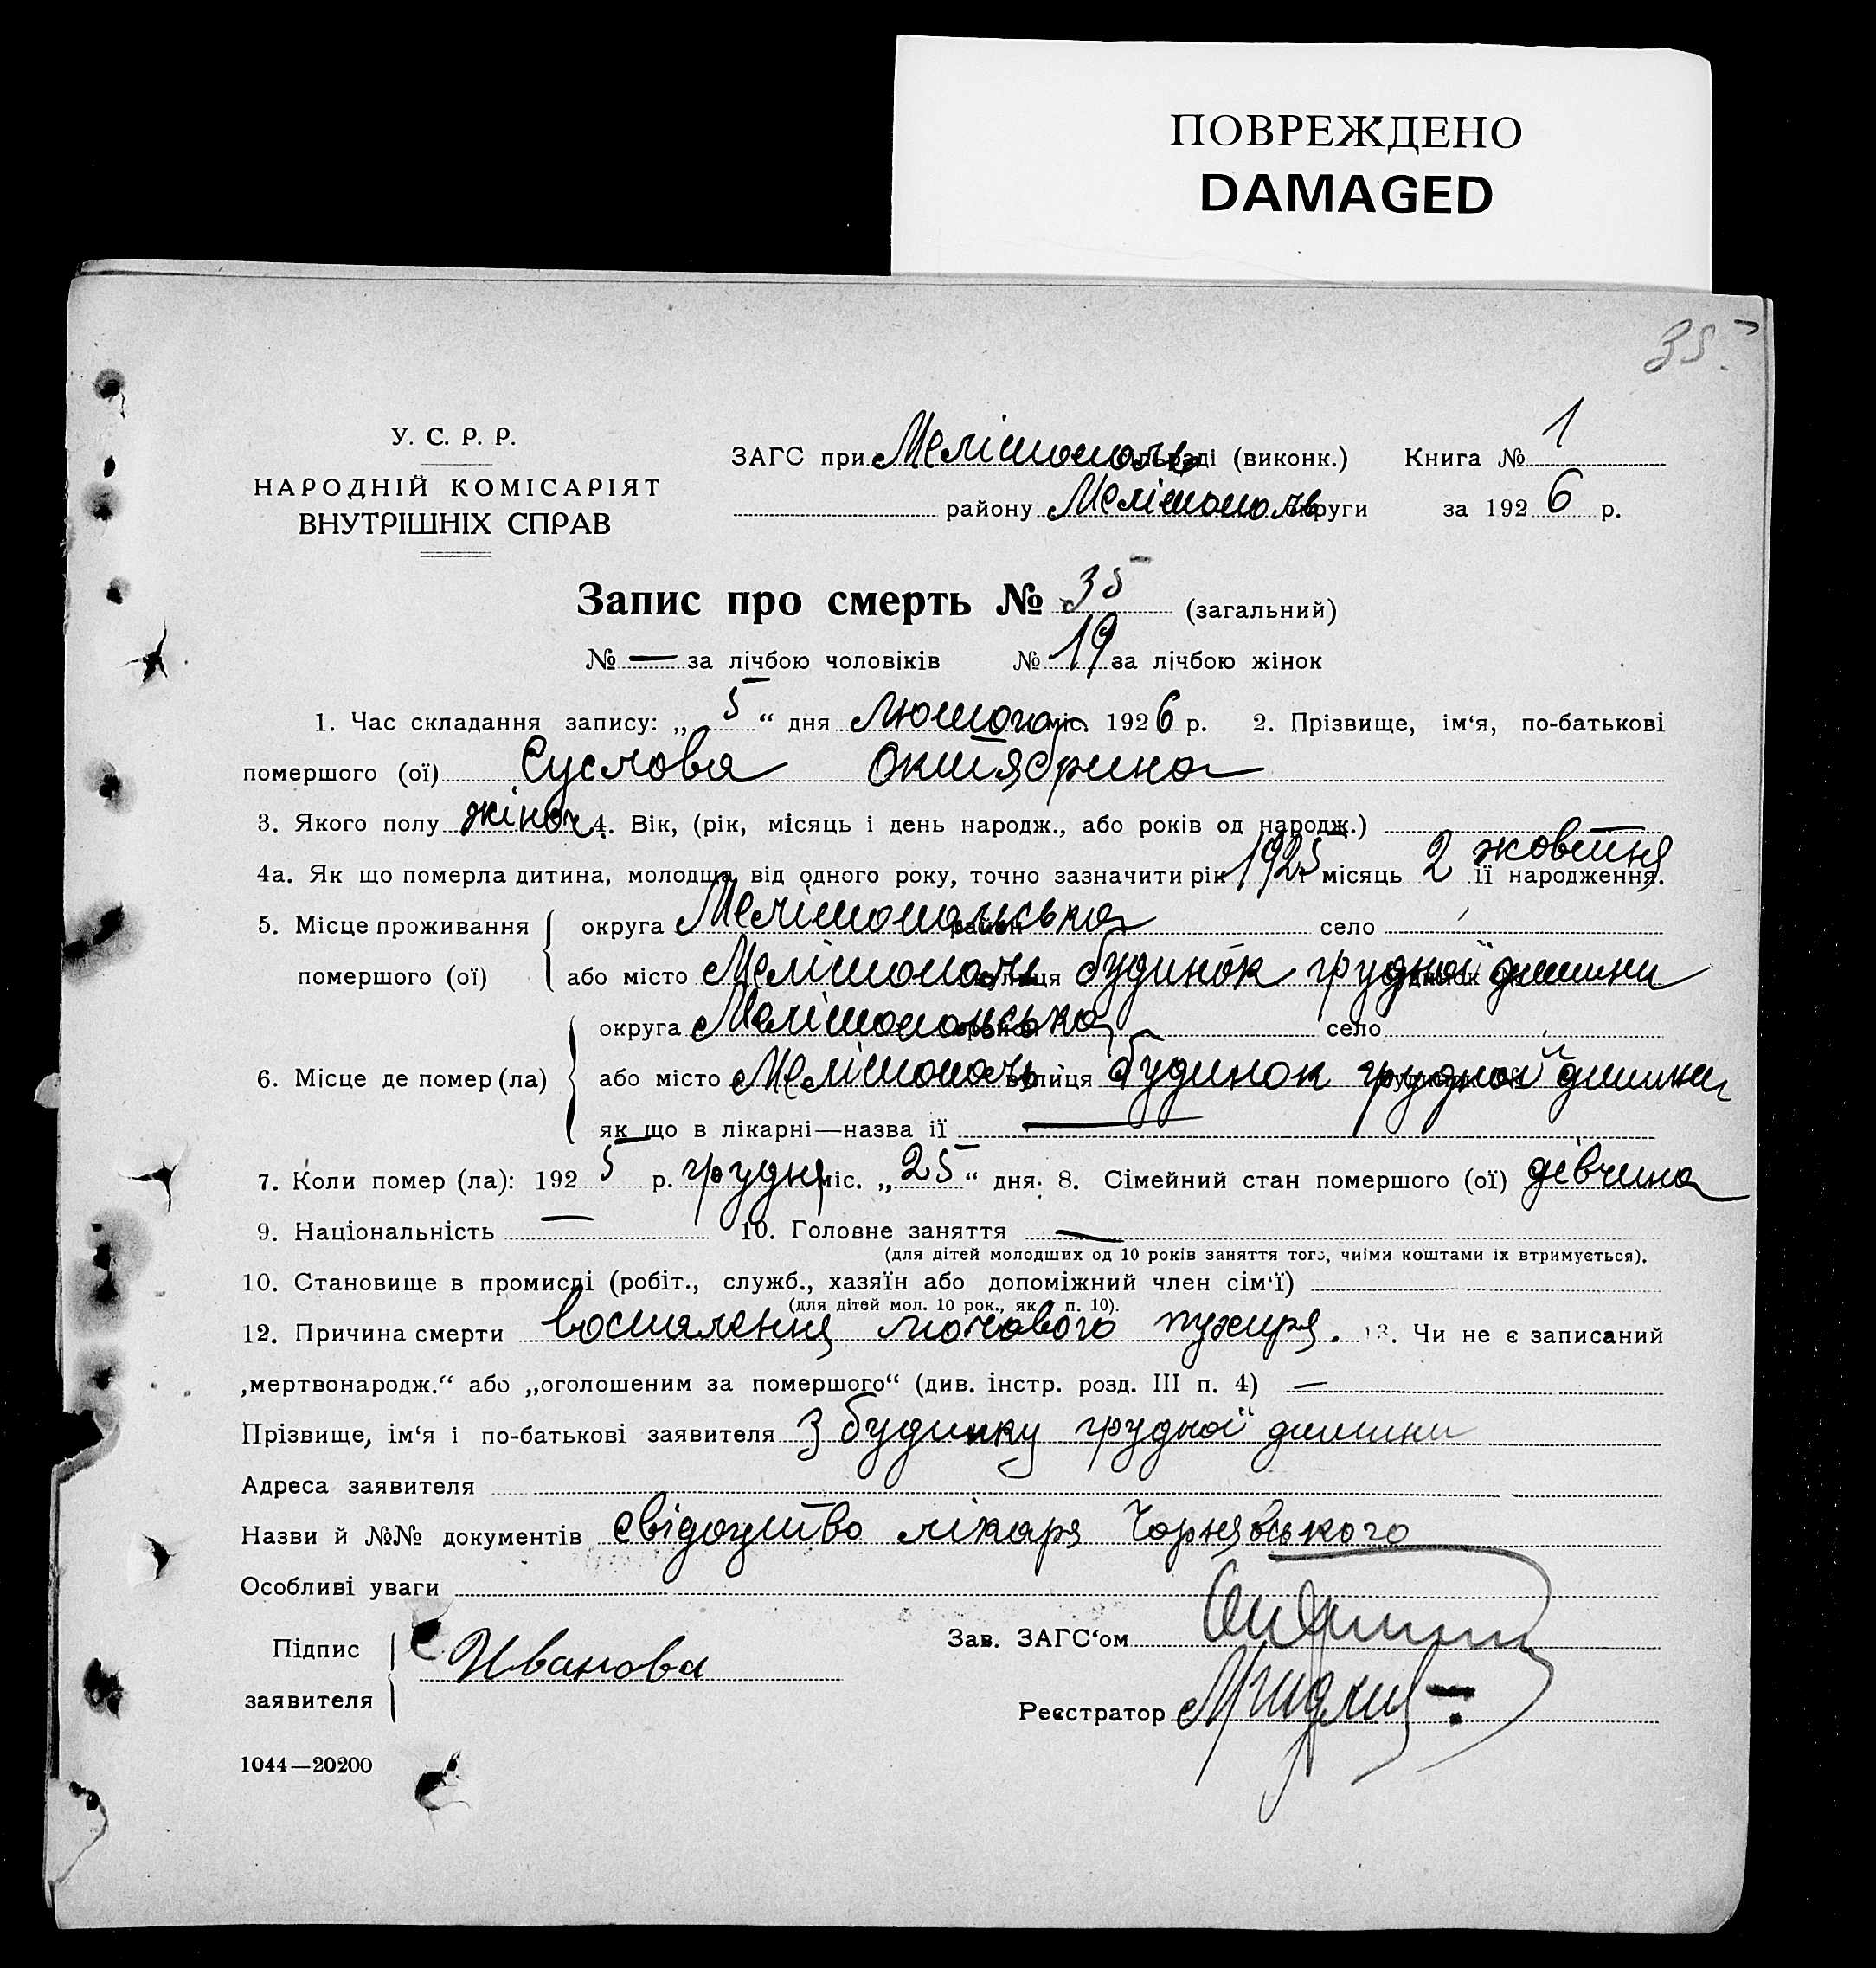 ПОВРЕЖДЕНО
DAMAGED
35
У. С. Р. Р.
НАРОДНІЙ КОМІСАРІЯТ
ВНУТРІШНІХ СПРАВ
ЗАГС при Мелітополь сільраді (виконк.) Книга № 1
району Мелітополь округи за 1926 р.
Запис про смерть № 35 (загальний)
№ — за лічбою чоловіків № 19 за лічбою жінок
1. Час складання запису: „5“ дня лютого міс. 1926 р. 2. Прізвище, ім‘я, по-батькові
помершого (ої) Суслова Октябрина
3. Якого полу жіноч. 4. Вік, (рік, місяць і день народж., або років од народж.)
4а. Як що померла дитина, молодша від одного року, точно зазначити рік 1925 місяць 2 жовтня її народження.
5. Місце проживання помершого (ої) округа Мелітопольська район село
або місто Мелітополь вулиця будинок грудної дитини
6. Місце де помер (ла) округа Мелітопольська район село
або місто Мелітополь вулиця будинок грудної дитини
як що в лікарні—назва її —
7. Коли помер (ла): 1925 р. грудня міс. „25“ дня. 8. Сімейний стан помершого (ої) дівчина
9. Національність — 10. Головне заняття —
(для дітей молодших од 10 років заняття того, чиїми коштами їх втримується).
10. Становище в промислі (робіт., служб., хазяїн або допоміжний член сім‘ї)
(для дітей мол. 10 рок., як п. 10).
12. Причина смерти воспалення мочового пужиря. 13. Чи не є записаний
„мертвонародж.“ або „оголошеним за помершого“ (див. інстр. розд. III п. 4) —
Прізвище, ім‘я і по-батькові заявителя З будинку грудної дитини
Адреса заявителя
Назви й №№ документів свідоцтво лікаря Чорнявського
Особливі уваги
Підпис заявителя Иванова
Зав. ЗАГС‘ом
Реєстратор
1044—20200